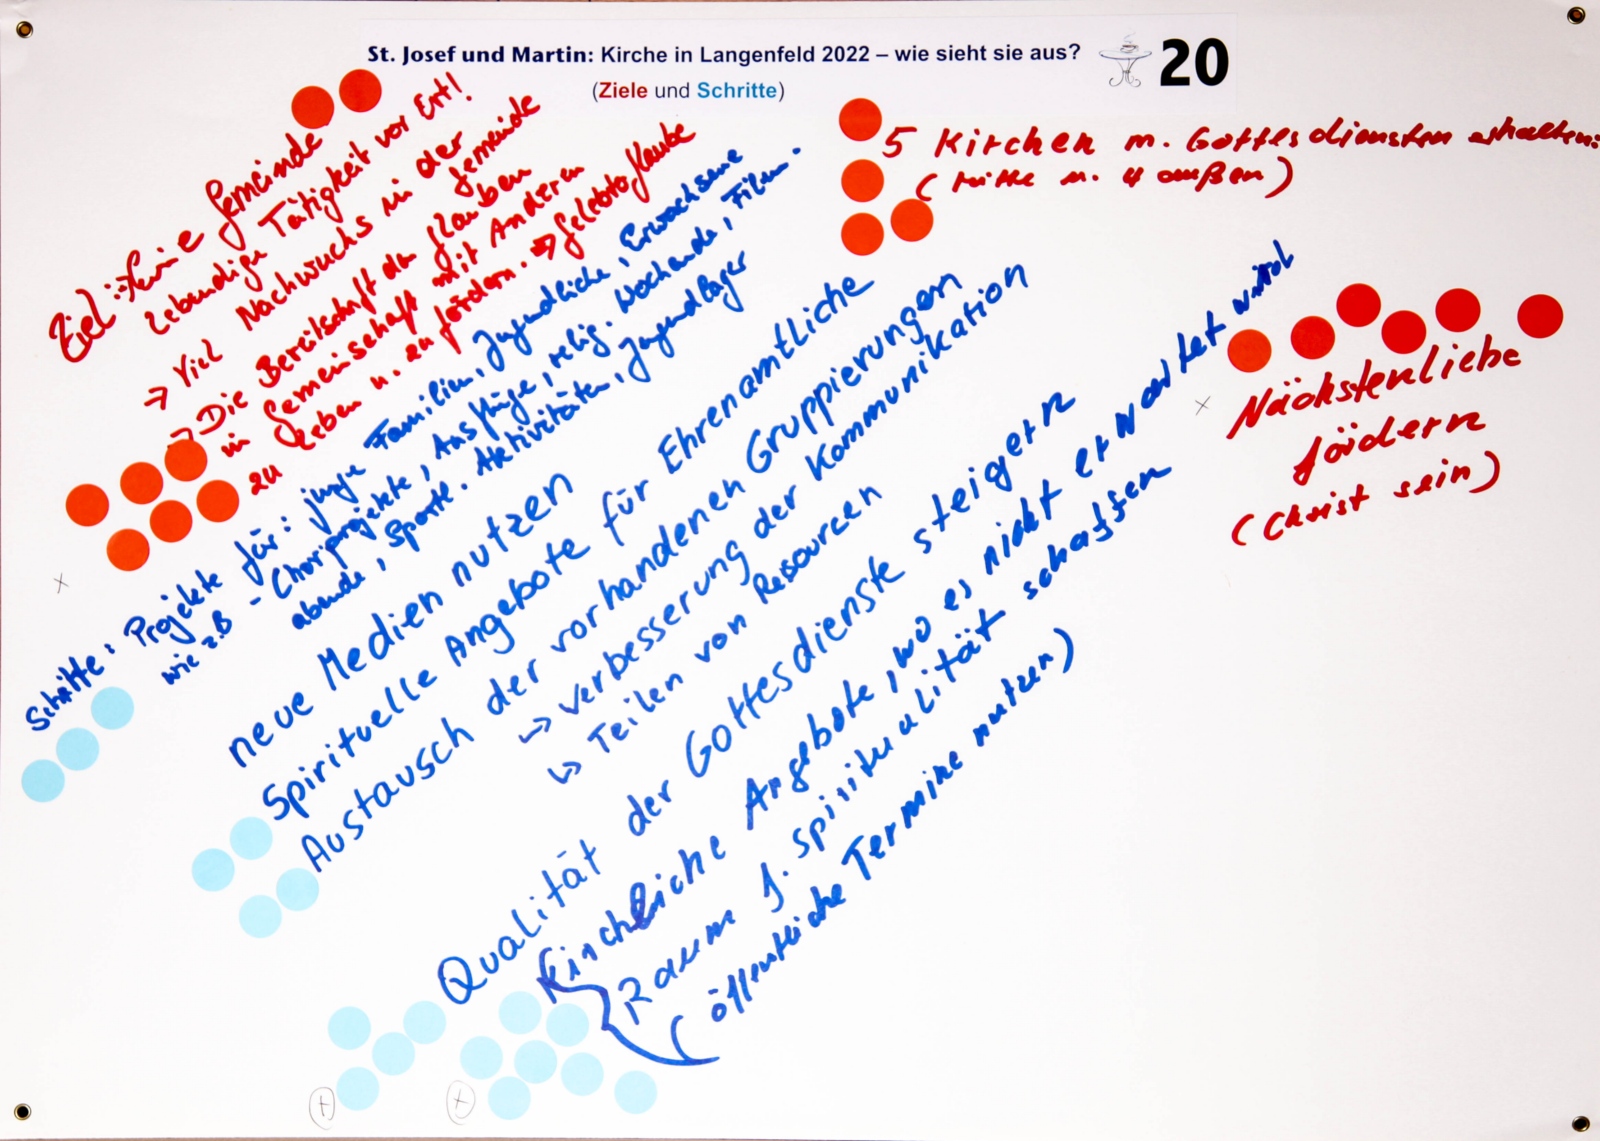 St. Josef und Martin: Kirche in Langenfeld 2022 – wie sieht sie aus?
(Ziele und Schritte)
20
Ziel: Gemeinde
Lebendige Tätigkeit vor Ort!
→ Viel Nachwuchs in der Gemeinde
→ Die Bereitschaft den Glauben
in Gemeinschaft mit Anderen
zu leben u. zu fördern. → gelebter Glaube
5 Kirchen m. Gottesdiensten erhalten:
(Mitte u. 4 außen)
Nächstenliebe
fördern
(Christ sein)
Schritte: Projekte für: junge Familien, Jugendliche, Erwachsene
wie z.B - Chorprojekte, Ausflüge, relig. Wochende, Film-
abende, Sportl. Aktivitäten, Jugendlager
neue Medien nutzen
Spirituelle Angebote für Ehrenamtliche
Austausch der vorhandenen Gruppierungen
↳ Verbesserung der Kommunikation
↳ Teilen von Resourcen
Qualität der Gottesdienste steigern
Kirchliche Angebote, wo es nicht erwartet wird
Räume f. Spiritualität schaffen
(öffentliche Termine nutzen)